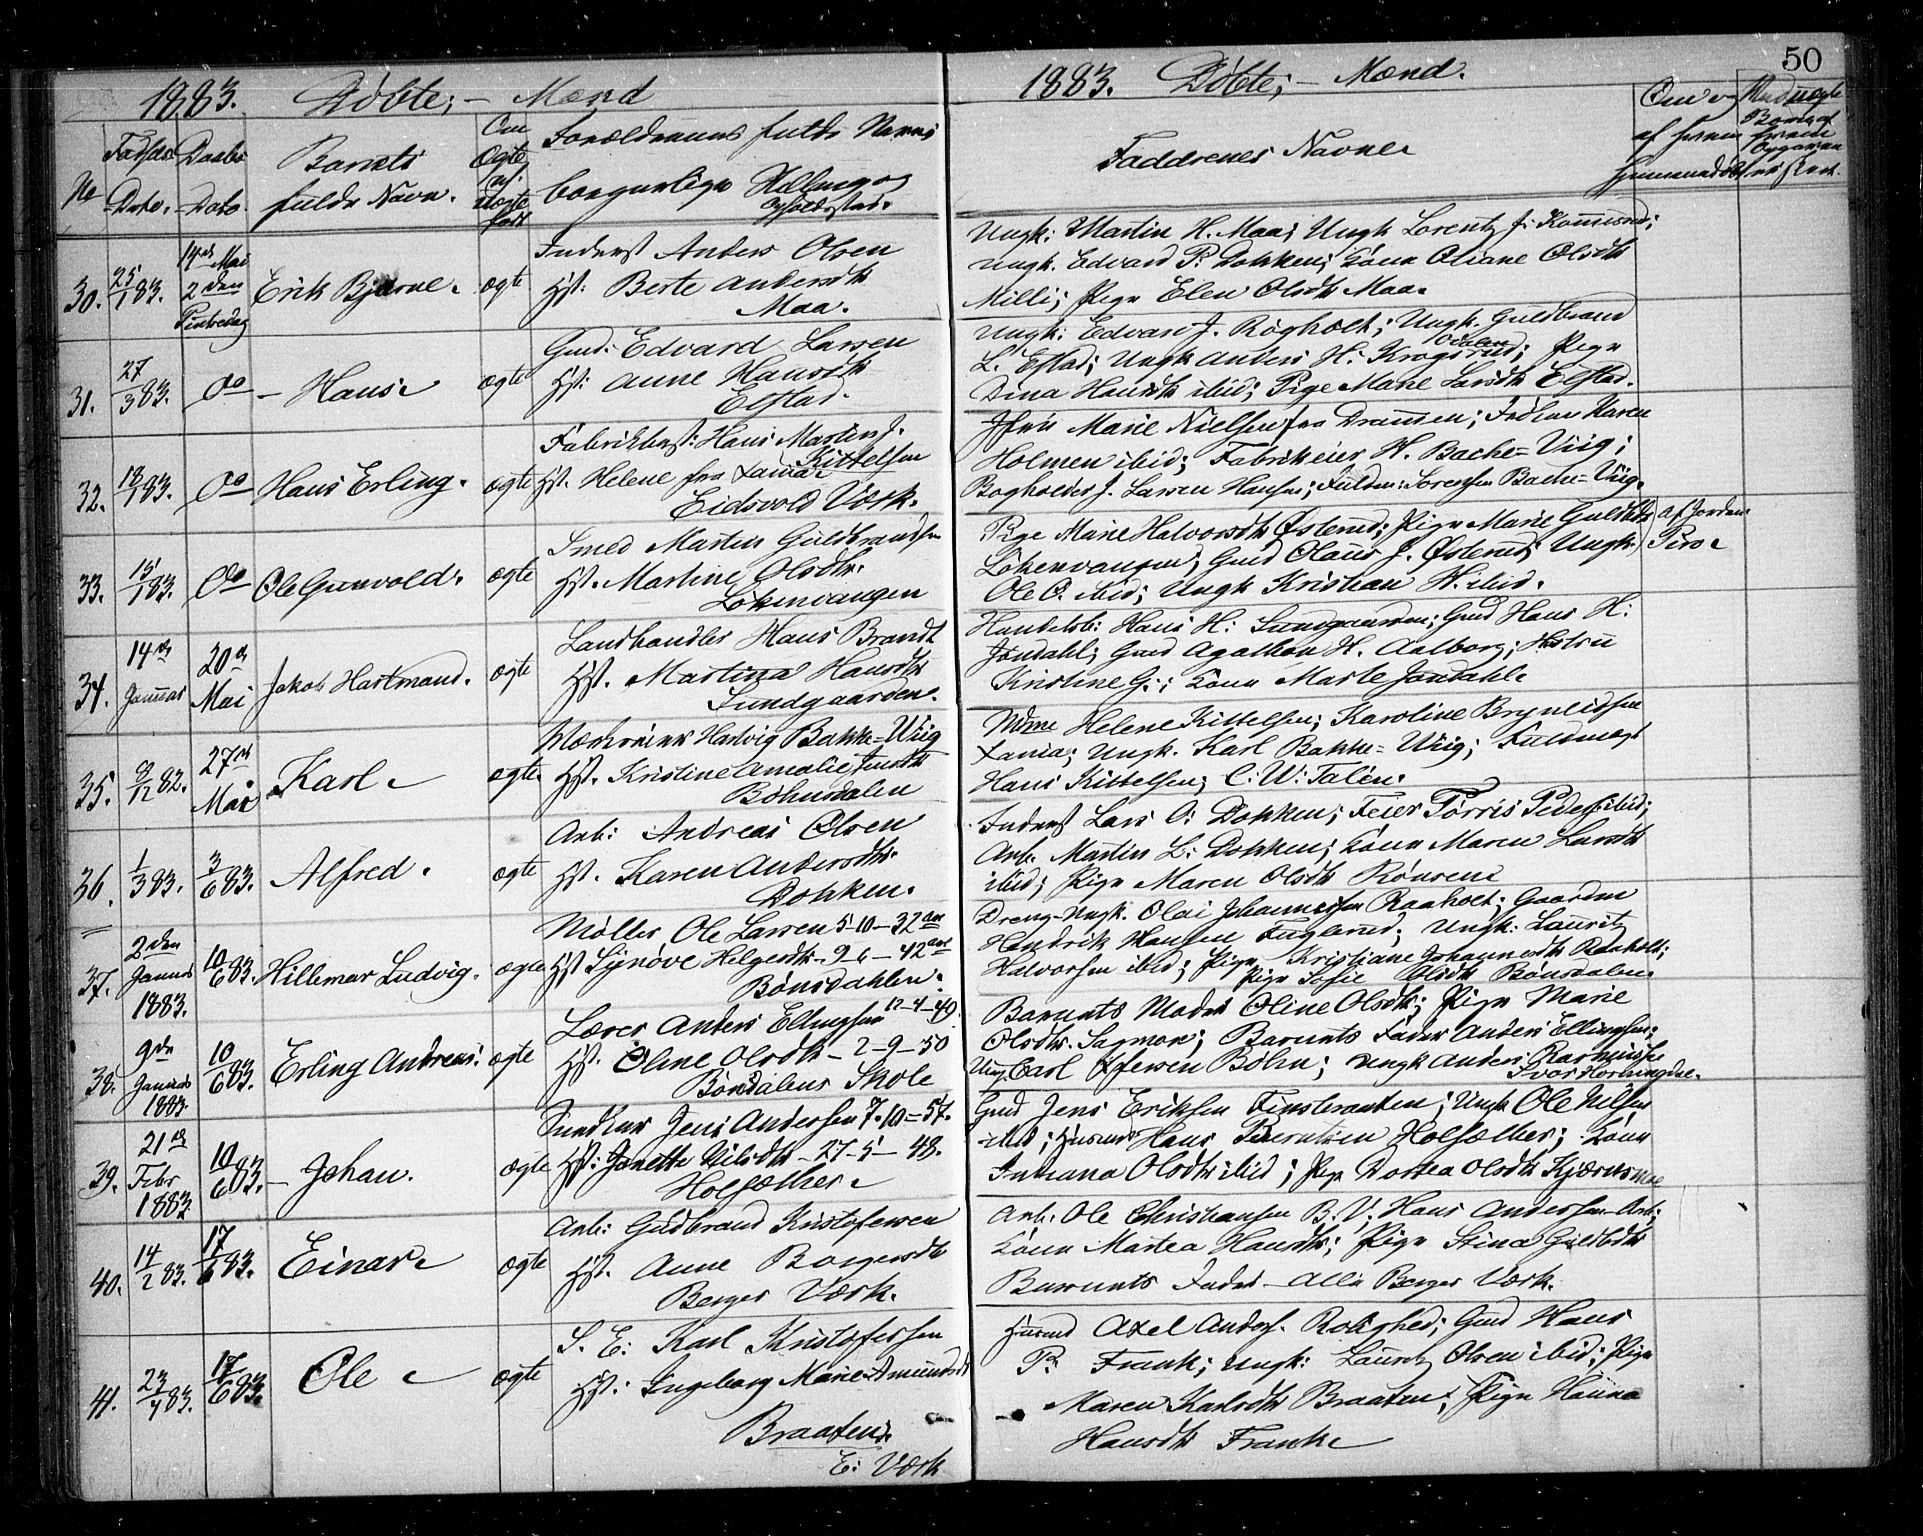 1883. Döbte; — Mænd
No
Fødsels Dato.
Daabs Dato.
Barnets fulde Navn.
Om Ægte el. Uægte født
Forældrenes fulde Navne
borgerlige Stilling og
Opholdssted.
30. 25/1 83. 14de Mai 2den Pintsedag Erik Bjarne. ægte
Inderst Anders Olsen
Hst: Berte Andersdtr
Maa.
31. 27/3 83. Do Hans. ægte
Gmd: Edvard Larsen
Hst: Anne Hansdtr
Elstad.
32. 18/1 83. Do Hans Erling. ægte
Fabrikbest: Hans Martin J. Kittelsen
Hst. Helene fra
Eidsvold Værk.
33. 15/1 83. Do Ole Gunvald. ægte
Smed Martin Guldbrandsen
Hst. Martine Olsdtr.
Lökenvangen
34. 14de Januar 20de Mai Jakob Hartmand. ægte
Landhandler Hans Brandt
Hst. Martina Hansdtr
Sundgaarden.
35. /12 82. 27de Mai Karl. ægte
Hartvig Bakke-Wiig
Hst. Kristine Amalie Jensdtr
Böhnsdalen
36. 1/3 83. 3/6 83. Alfred. ægte
Arb: Andreas Olsen
Hst. Karen Andersdtr.
Dokken.
37. 2den Januar 1883. 10/6 83. Hillemar Ludvig. ægte
Møller Ole Larsen 5-10-32
Hst Synøve Helgesdtr. 9-6-42
Bönsdahlen.
38. 9de Januar 1883. 10/6 83. Erling Andreas. ægte
Lærer Anders Ellingsen 12-4-49
Hst. Oline Olsdtr - 2-9-50
Böndalens Skole
39. 21de Febr 1883. 10/6 83. Johan. ægte
Jens Andersen 7-10-57.
Hst: Jonetta Nilsdtr - 27-5-48.
Holsæther.
40. 14/2 83. 17/6 83. Einar. ægte
Arb: Guldbrand Kristofersen
Hst. Anne Borgersdtr
Berger Værk.
41. 23/4 83. 17/6 83. Ole ægte
S. E: Karl Kristofersen
Hst: Ingeborg Marie Amundsdtr
Braaten.
E: Værk
50
1883. Döbte; — Mænd.
Faddrenes Navne
Martin H. Maa; Ungk Lorentz J.
Ungk. Edvard P. Dokken; Kone Oliane Olsdtr
Milli; Pige Elen Olsdtr Maa.
Ungk: Edvard J. Rögholt; Ungk. Guldbrand
L. Elstad; Ungk Anders H. Krogsrud; Pige
Dina Hansdtr ibid; Pige Marie Larsdtr Elstad.
Marie Nielsen fra Drammen; Frøken Karen
Holmen ibid; Fabrikeier H. Bache-Wiig;
Bogholder J. Larsen Hansen; Fuldm: Sorensen Bache-Wiig.
Pige Marie Halvorsdtr Österud; Pige Marie Guldbdtr
Lökenvangen; Gmd Olaus J. Österud; Ungk.
Ole O. ibid; Ungk Kristian H. ibid.
af Jordem:
Handelsb: Hans H: Sundgaarden; Gmd Hans H:
Jöndahl; Gmd Agathon H. Aalborg; Hustru
Kristine G.; Kone Marte Jöndahl.
Helene Kittelsen; Karoline Brynildsen
Ungk. Karl Bakke-Wiig; Fuldmægt
Hans Kittelsen; C. W: Talén.
Inderst Lars O: Dokken; Feier Törris Peders. ibid;
Arb. Martin L. Dokken; Kone Maren Larsdtr
ibid; Pige Maren Olsdtr
Dreng-Ungk. Olai Johannessen Raaholt; Gaardm
Hendrik Hansen Fuglerud; Ungk: Lauritz
Halvorsen ibid; Pige Kristiane Johannesdtr Raaholt;
Pige Sofie Olsdtr Bönsdalen
Barnets Moder Oline Olsdtr; Pige Marie
Olsdtr. Sagmoen; Barnets Fader Anders Ellingsen;
Carl Ifversen Böhn; Ungk Anders Rasmussen
Gmd Jens Eriksen Finsbraaten; Ungk Ole Nilsen
ibid; Husmd Hans Berntsen Holsæther; Kone
Olsdtr ibid; Pige Dortea Olsdtr
Arb. Ole Christiansen B. V; Hans Andersen Arb;
Kone Martea Hansdtr; Pige Stina Guldbdtr
Barnets Fader — Alle Berger Værk.
Husmd Axel Anders. Rolighed; Gmd Hans
P. Frank; Ungk: Lauritz Olsen ibid; Pige
Maren Karlsdtr Braaten; Pige Hanna
Hansdtr Frank